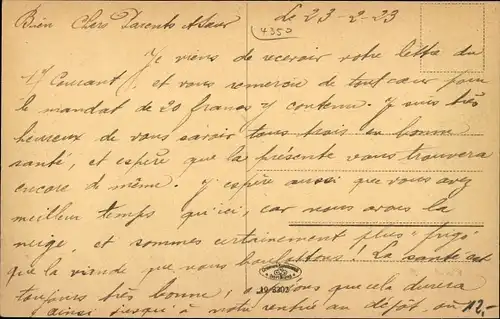 Bien Chers Parents &
le 23-2-23
4350
Je viens de recevoir votre lettre du
17 Courant, et vous remercie de tout cœur pour
le mandat de 20 francs y contenu. Je suis très
heureux de vous savoir tous trois en bonne
santé, et espère que la présente vous trouvera
encore de même. J'espère aussi que vous avez
meilleur temps qu'ici, car nous avons la
neige, et sommes certainement plus "frigo"
que la viande que nous boulottons! La santé est
toujours très bonne; que cela durera
ainsi jusqu'à notre rentrée au dépôt, où
12,-